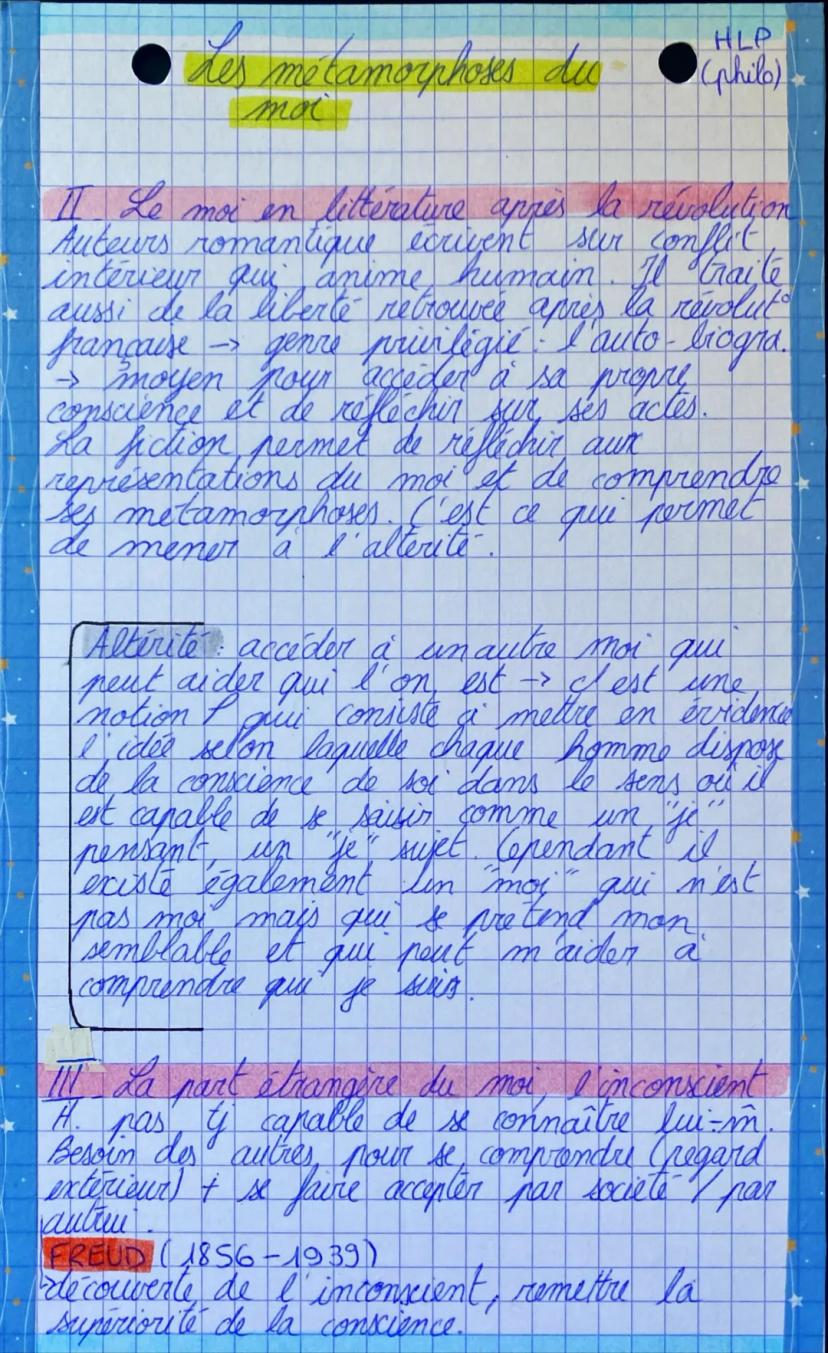 HLP
(philo)
Les métamorphoses du
moi
II - Le moi en littérature après la révolution
Auteurs romantique écrivent sur conflit
intérieur qui anime humain. Il traite
aussi de la liberté retrouvée après la révolut°
française → genre privilégié : l'auto-biogra.
→ moyen pour accéder à sa propre
conscience et de réfléchir sur ses actes.
La fiction permet de réfléchir aux
représentations du moi et de comprendre
ses métamorphoses. C'est ce qui permet
de mener à l'altérité.
Altérité : accéder à un autre moi qui
peut aider qui l'on est → c'est une
notion qui consiste à mettre en évidence
l'idée selon laquelle chaque homme dispose
de la conscience de soi dans le sens où il
est capable de se saisir comme un "je"
pensant, un "je" sujet. Cependant il
existe également un "moi" qui n'est
pas moi mais qui se prétend mon
semblable et qui peut m'aider à
comprendre qui je suis.
III - La part étrangère du moi, l'inconscient
H. pas tj capable de se connaître lui-m̂.
Besoin des autres pour se comprendre (regard
extérieur) + se faire accepter par société / par
autrui.
FREUD (1856-1939)
↳ découverte de l'inconscient, remettre la
supériorité de la conscience.